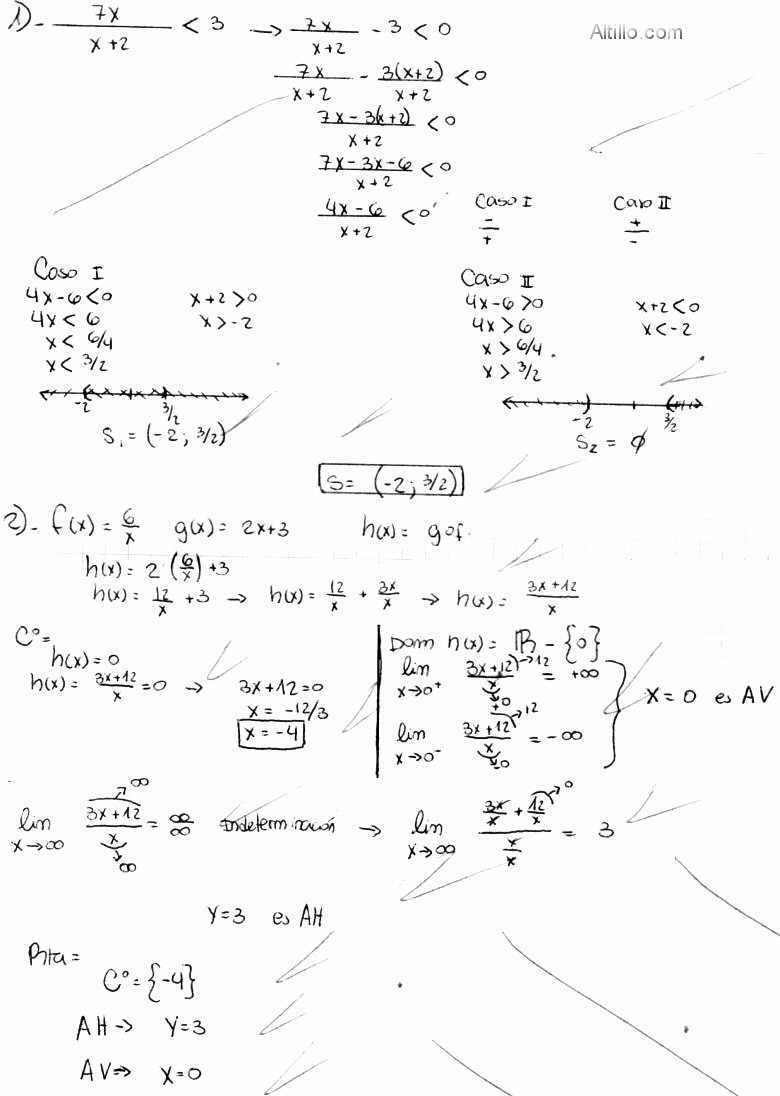 1)- 7x / x+2 < 3 → 7x / x+2 - 3 < 0
Altillo.com
7x / x+2 - 3(x+2) / x+2 < 0
7x - 3(x+2) / x+2 < 0
7x - 3x - 6 / x+2 < 0
4x - 6 / x+2 < 0
Caso I Caso II
- / + + / -
Caso I
4x - 6 < 0 x + 2 > 0
4x < 6 x > -2
x < 6/4
x < 3/2
-2 3/2
S₁ = (-2 ; 3/2)
Caso II
4x - 6 > 0 x + 2 < 0
4x > 6 x < -2
x > 6/4
x > 3/2
-2 3/2
S₂ = ϕ
S = (-2 ; 3/2)
2)- f(x) = 6/x g(x) = 2x+3 h(x) = gof
h(x) = 2·(6/x) + 3
h(x) = 12/x + 3 → h(x) = 12/x + 3x/x → h(x) = 3x+12 / x
C° =
h(x) = 0
h(x) = 3x+12 / x = 0 → 3x + 12 = 0
x = -12/3
x = -4
Dom h(x) = ℝ - {0}
lim x→0⁺ 3x+12 / x = +∞ →12 →+0
lim x→0⁻ 3x+12 / x = -∞ →12 →-0
x = 0 es AV
lim x→∞ 3x+12 / x = ∞/∞ Indeterminación → lim x→∞ 3x/x + 12/x / x/x = 3
→∞ →∞ →0
Y=3 es AH
Rta =
C° = {-4}
AH → Y=3
AV ⇒ X=0